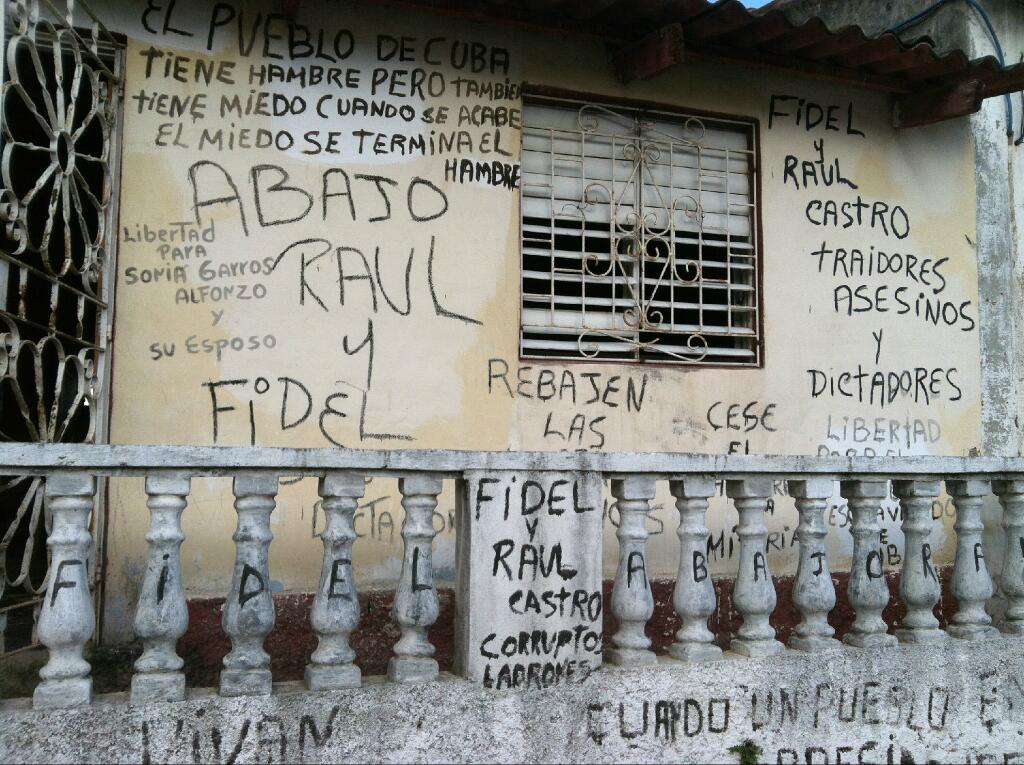 EL PUEBLO DE CUBA
TIENE HAMBRE PERO TAMBIEN
TIENE MIEDO CUANDO SE ACABE
EL MIEDO SE TERMINA EL
HAMBRE
ABAJO
RAUL
Y
FIDEL
Libertad
PARA
SONIA GARROS
ALFONZO
Y
SU ESPOSO
REBAJEN
LAS
CESE
EL
FIDEL
y
RAUL
CASTRO
TRAIDORES
ASESINOS
Y
DICTADORES
LIBERTAD
FIDEL
FIDEL
Y
RAUL
CASTRO
CORRUPTOS
LADRONES
ABAJO RA
VIVAN
CUANDO UN PUEBLO